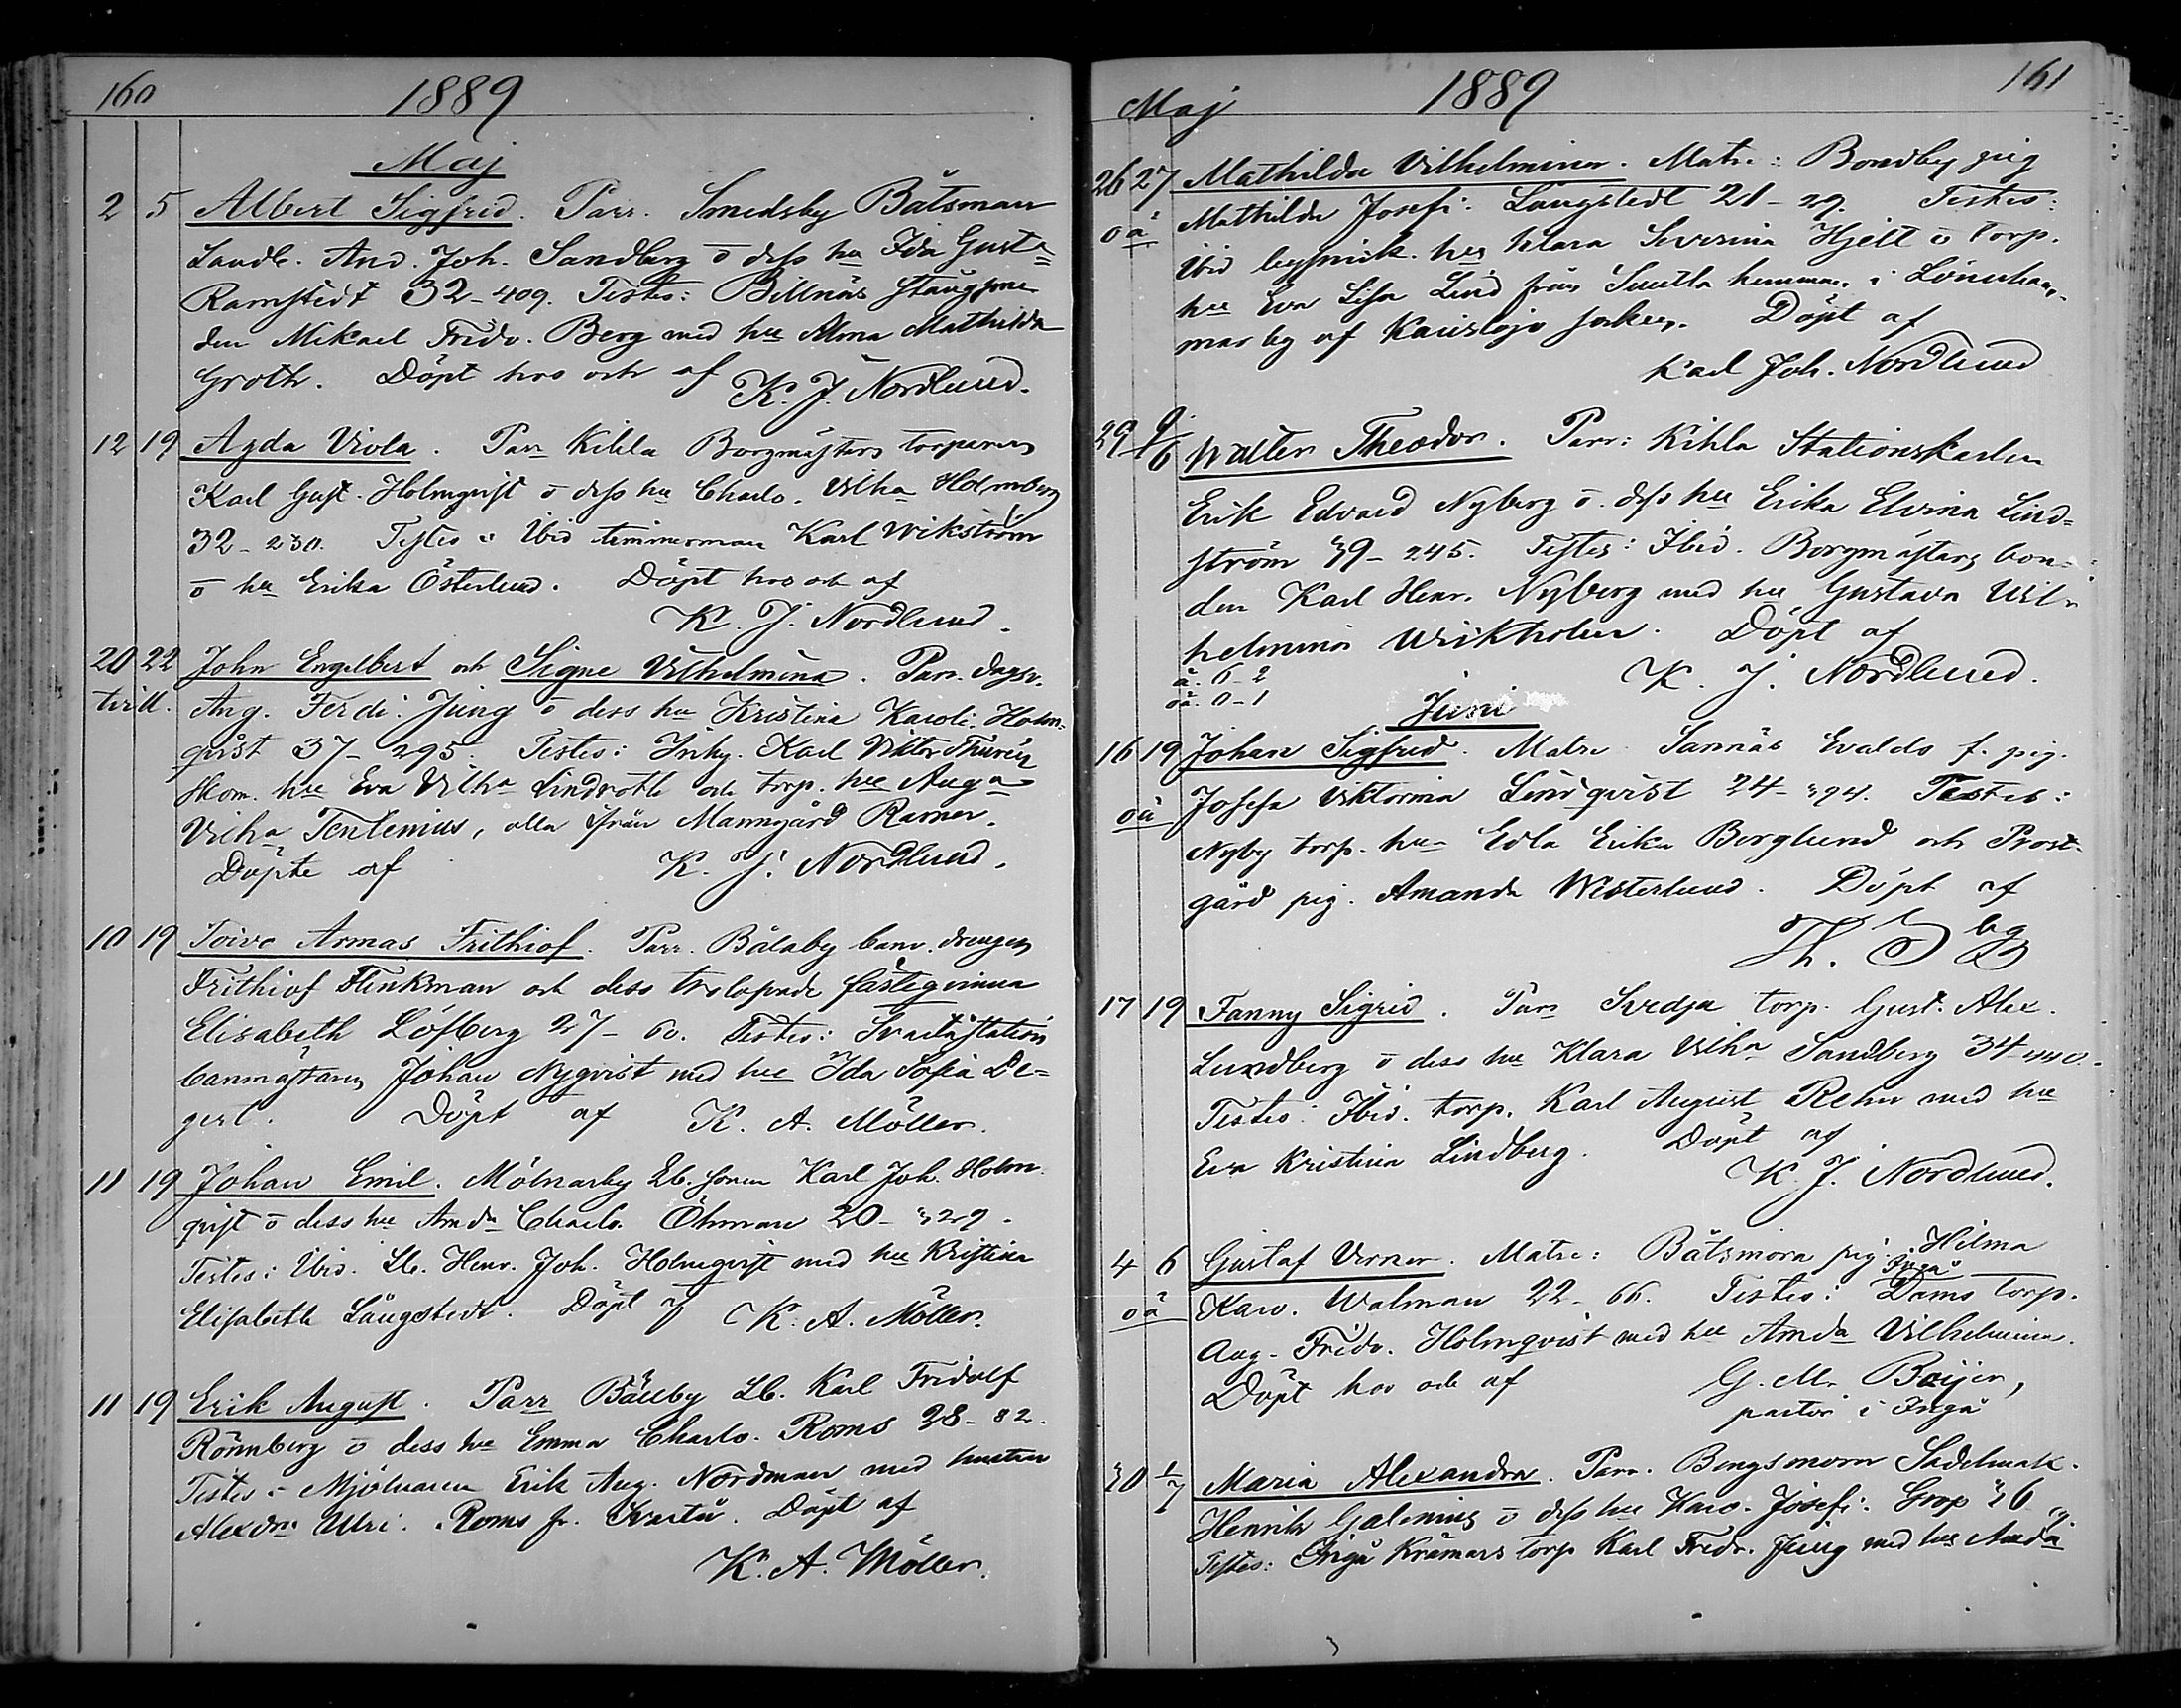 160
1889
Maj
2 5 Albert Sigfrid. Parr. Smedsby Båtsman
Landb. And. Joh. Sandberg o dess hu Ida Gust:
Ramstedt 32-409. Testes: Billnäs
den Mikael Fridr. Berg med hu Alma Mathilda
Groth. Döpt hos och af K. J. Nordlund.
12 19 Agda Viola. Parr Kihla Borgmästars torparen
Karl Gust. Holmqvist o dess hu Charlo. Vilha Holmberg
32-230. Testes: Ibid timmerman Karl Wikström
o hu Erika Österlund. Döpt hos och af
K. J. Nordlund.
20 22 John Engelbert och Signe Vilhelmina. Parr. dagsv.
tvill. Aug. Ferdi. Jung o dess hu Kristina Karoli. Holm-
qvist 37-295. Testes: Inhy. Karl Viktor Thurén
Skom. hu Eva Vilha Lindroth och torp. hu Auga
Vilha Tenlenius, alla från Manngård Ramer.
Döpte af K. J. Nordlund.
10 19 Toivo Armas Frithiof. Parr. Bålaby banv. drengen
Frithiof Flinkman och dess trolofvade fästeqvinna
Elisabeth Löfberg 27-60. Testes: Svartå station
banmästaren Johan Nyqvist med hu Ida Sofia De-
gert. Döpt af K. A. Möller.
11 19 Johan Emil. Mölnarby Lb. sonen Karl Joh. Holm
qvist o dess hu Amda Charlo. Öhman 20-329.
Testes: Ibid. Lb. Henr. Joh. Holmqvist med hu Kristina
Elisabeth Långstedt. Döpt af K. A. Möller.
11 19 Erik August. Parr Bållby Lb. Karl Fridolf
Rönnberg o dess hu Emma Charlo. Roms 28-82.
Testes: Mjölnaren Erik Aug. Nordman med hustru
Alexdra Ulri. Roms fr. Svartå. Döpt af
K. A. Möller.
161
Maj 1889
26 27 Mathilda Vilhelmina. Matr.: Bondby pig
oä Mathilda Josefi. Långstedt 21-29. Testes:
Ibid hu Klara Severina Hjelt o torp.
hu Eva Lisa Lind från hemman i Lönnham-
mar by af Karislojo socken. Döpt af
Karl Joh. Nordlund
29 9/6 Walter Theodor. Parr: Kihla Stationskarlen
Erik Edvard Nyberg o. dess hu Erika Elvina Lind=
ström 39-245. Testes: Ibid. Borgmästars bon-
den Karl Henr. Nyberg med hu Gustava Vil-
helmina Wikholm. Döpt af
ä. 6-2
oä. 0-1
K. J. Nordlund.
Juni
16 19 Johan Sigfrid. Matr. Sannäs Evalds f. pig.
oä Josefa Viktorina Lindqvist 24-394. Testes:
Nyby torp. hu Edla Erika Berglund och Prost-
gård pig. Amanda Westerlund. Döpt af
Th. S bg
17 19 Fanny Sigrid. Parr Svedja torp. Gust. Alex.
Lundberg o dess hu Klara Vilha Sandberg 34-440.
Testes: Ibid. torp. Karl August Rehn med hu
Eva Kristina Lindberg. Döpt af
K. J. Nordlund.
4 6 Gustaf Verner. Matr.: Båtsmora pig. Hilma
oä Karo. Walman 22-66. Testes: Ingå Dams torp.
Aug. Fridr. Holmqvist med hu Amda Vilhelmina.
Döpt hos och af G. M. Boijer,
pastor i Ingå
30 1/7 Maria Alexandra. Parr. Bengsmora Sadelmak.
Henrik Galenius o dess hu Karo. Josefi. Grop 36
Testes: Ingå Krämars torp Karl Fredr. Jung med hu Amda